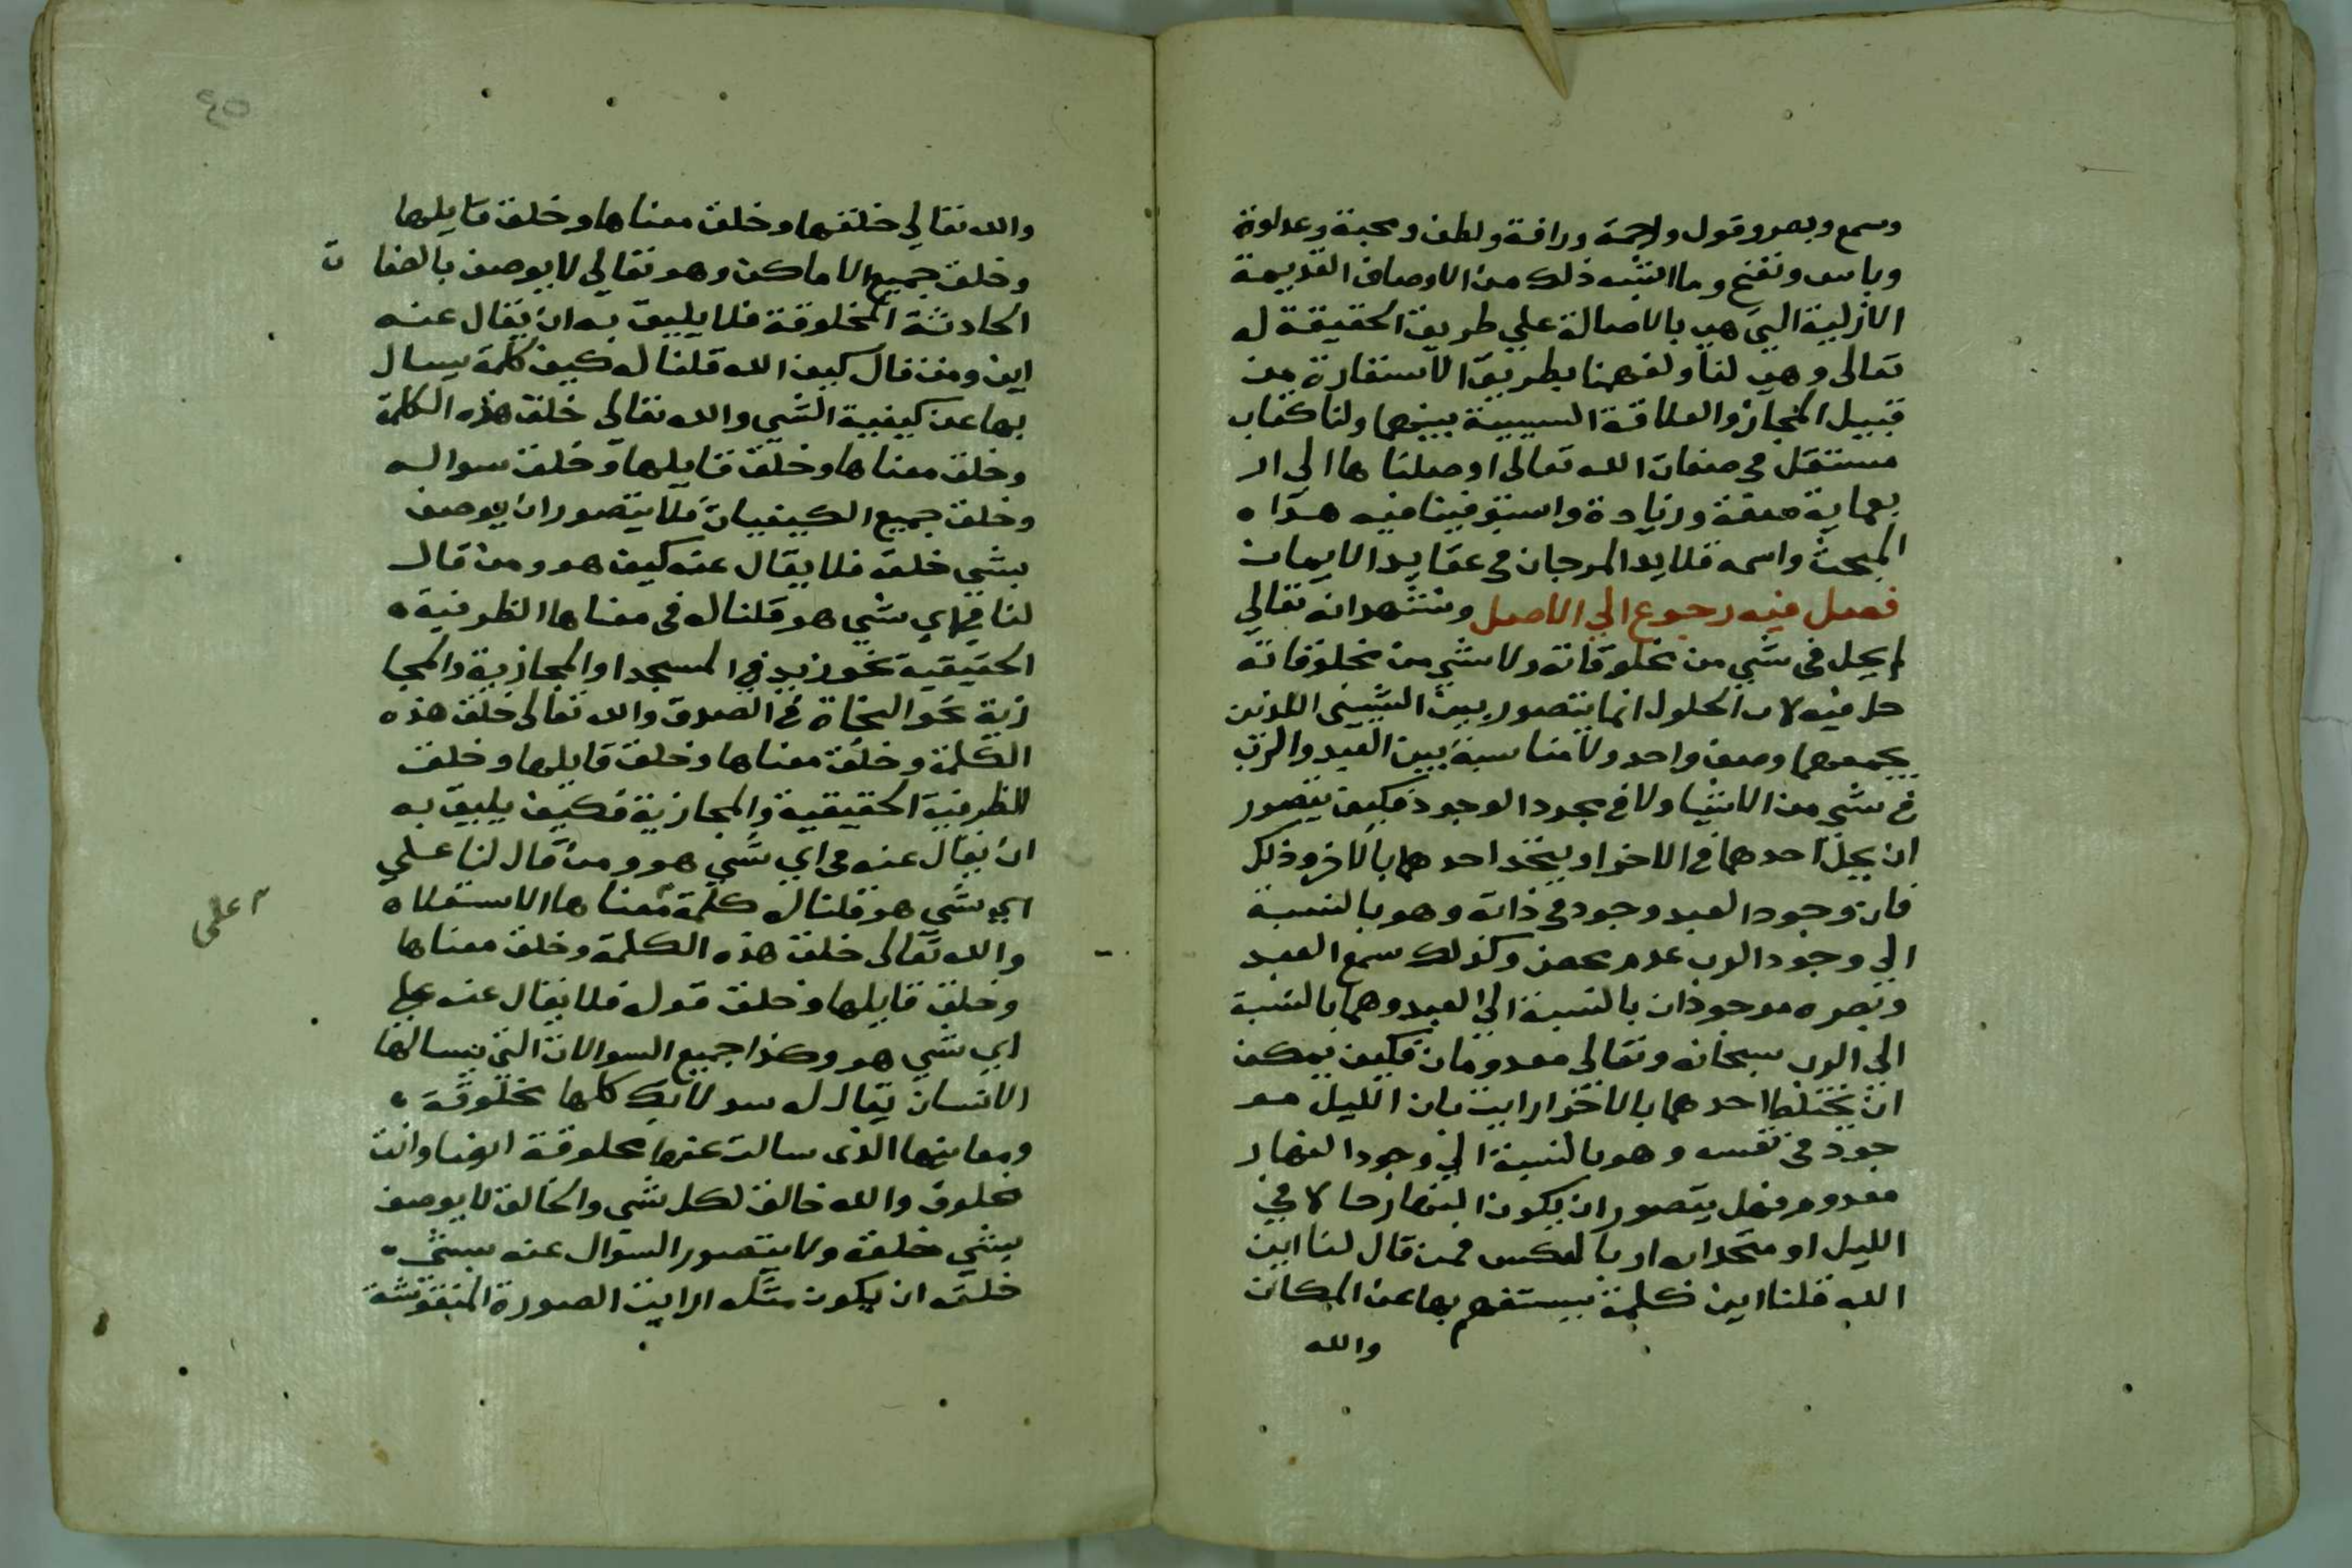 وسمع وبصر وقول ورحمة ورافة ولطف ومحبة وعداوة
وباس ونفخ وما اشبه ذلك من الاوصاف القديمة
الازلية التي هي بالاصالة علي طريق الحقيقة له
تعالى وهي لنا ولفهمنا بطريق الاستعارة من
قبيل المجاز والعلاقة السببية بينهما ولنا كتاب
مستقل في صفات الله تعالى اوصلناها الي ار
بعماية صفة وزيادة واستوفينا فيه هذا
المبحث واسمه قلايد المرجان في عقايد الايمان
فصل فيه رجوع الي الاصل ونشهد انه تعالي
لم يحل في شي من مخلوقاته ولا شي من مخلوقاته
حل فيه لان الحلول انما يتصور بين الشيين اللذين
يجمعهما وصف واحد ولا مناسبة بين العبد والرب
في شي من الاشيا ولا في مجرد الوجود فكيف يتصور
ان يحل احدهما في الاخر او يتحد احدهما بالاخر وذلك
فان وجود العبد وجود في ذاته وهو بالنسبة
الي وجود الرب عدم محض وكذلك سمع العبد
وبصره موجودان بالنسبة الي العبد وهما بالنسبة
الي الرب سبحانه وتعالى معدومان فكيف يمكن
ان يختلط احدهما بالاخر ارايت بان الليل مو
جود في نفسه وهو بالنسبة الي وجود النهار
معدوم فهل يتصور ان يكون النهار حالا في
الليل او متحدا به او بالعكس فمن قال لنا اين
الله قلنا اين كلمة يستفهم بها عن المكان
والله
٤٥
والله تعالي خلقها وخلق معناها وخلق قايلها
وخلق جميع الاماكن وهو تعالي لا يوصف بالصفات
الحادثة المخلوقة فلا يليق به ان يقال عنه
اين ومن قال كيف الله قلنا له كيف كلمة يسال
بها عن كيفية الشي والله تعالي خلق هذه الكلمة
وخلق معناها وخلق قايلها وخلق سواله
وخلق جميع الكيفيات فلا يتصور ان يوصف
بشي خلقه فلا يقال عنه كيف هو ومن قال
لنا في اي شي هو قلنا له في معناها الظرفية
الحقيقية نحو زيد في المسجد او المجازية والمجا
زية نحو النجاة في الصدق والله تعالى خلق هذه
الكلمة وخلق معناها وخلق قايلها وخلق
الظرفية الحقيقية والمجازية فكيف يليق به
ان يقال عنه في اي شي هو ومن قال لنا علي
اي شي هو قلنا له كلمة معناها الاستعلا
على
والله تعالى خلق هذه الكلمة وخلق معناها
وخلق قايلها وخلق قوله فلا يقال عنه علي
اي شي هو وكذا جميع السوالات التي يسالها
الانسان يقال له سوالاتك كلها مخلوقة
ومعانيها الذي سالت عنها مخلوقة ايضا وانت
مخلوق والله خالق لكل شي والخالق لا يوصف
بشي خلقه ولا يتصور السوال عنه بشي
خلقه ان يكون مثله ارايت الصورة المنقوشة